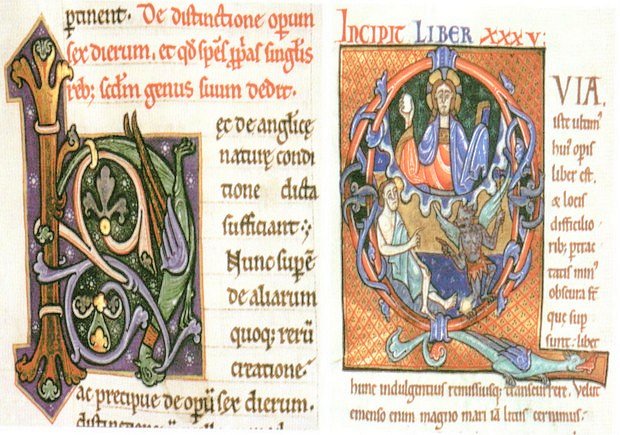 ptinent. De distinctione operum
sex dierum, et qđ spēs ppas singlis
reb; scdm genus suum dedit.
Hec de anglice
nature condi
tione dicta
sufficiant
Nunc supē
de aliarum
quoq; rerū
creatione
ac precipue de opū sex dierum.
distinctione
INCIPIT LIBER XXXV:
QVIA.
iste ultim᾽
hui᾽ opis
liber est,
& locis
difficilio
rib; ptrac
tatis min᾽
obscura st
que sup
sunt: liber
hunc indulgentius remissiusq; transcurrere. Velut
emenso enim magno mari iā litus cernimus.